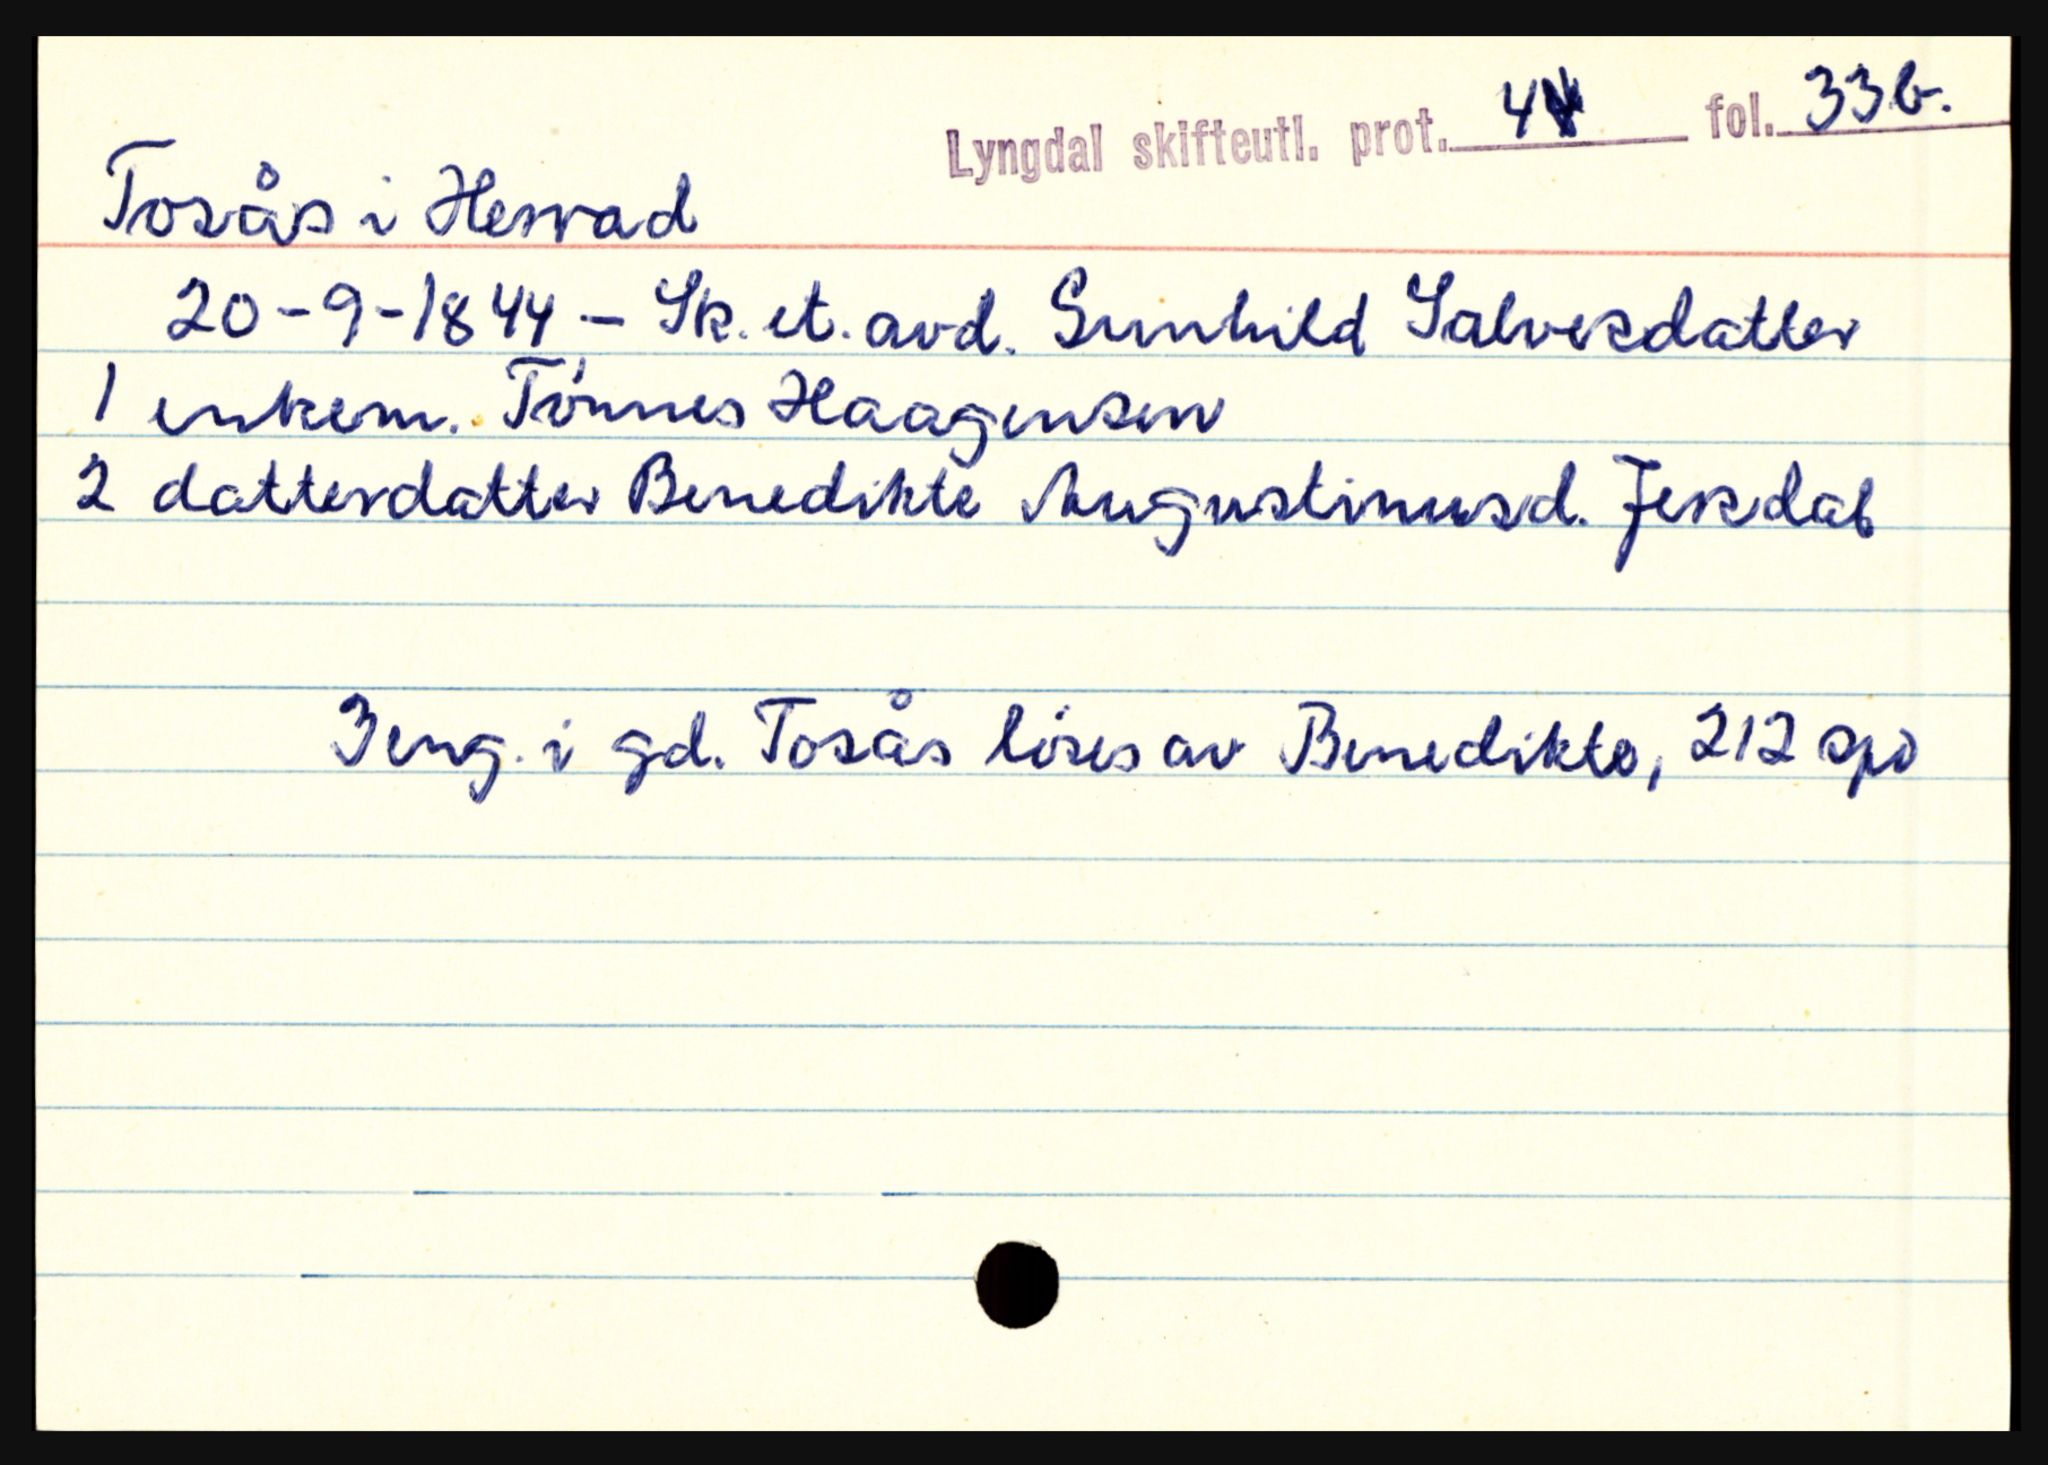 Lyngdal skifteutl. prot. 4 fol. 33b.
Tosås i Herad
20-9-1844 - Sk. et. avd. Gunhild Salvesdatter
1 enkem. Tönnes Haagensen
2 datterdatter Benedikte Augustinusd. Jerdal
3 eng. i gd. Tosås löses av Benedikte, 212 spd